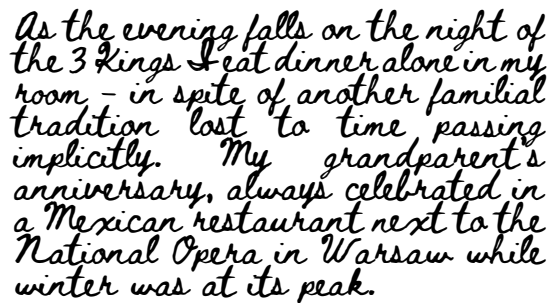 As the evening falls on the night of
the 3 Kings I eat dinner alone in my
room - in spite of another familial
tradition lost to time passing
implicitly. My grandparent's
anniversary, always celebrated in
a Mexican restaurant next to the
National Opera in Warsaw while
winter was at its peak.